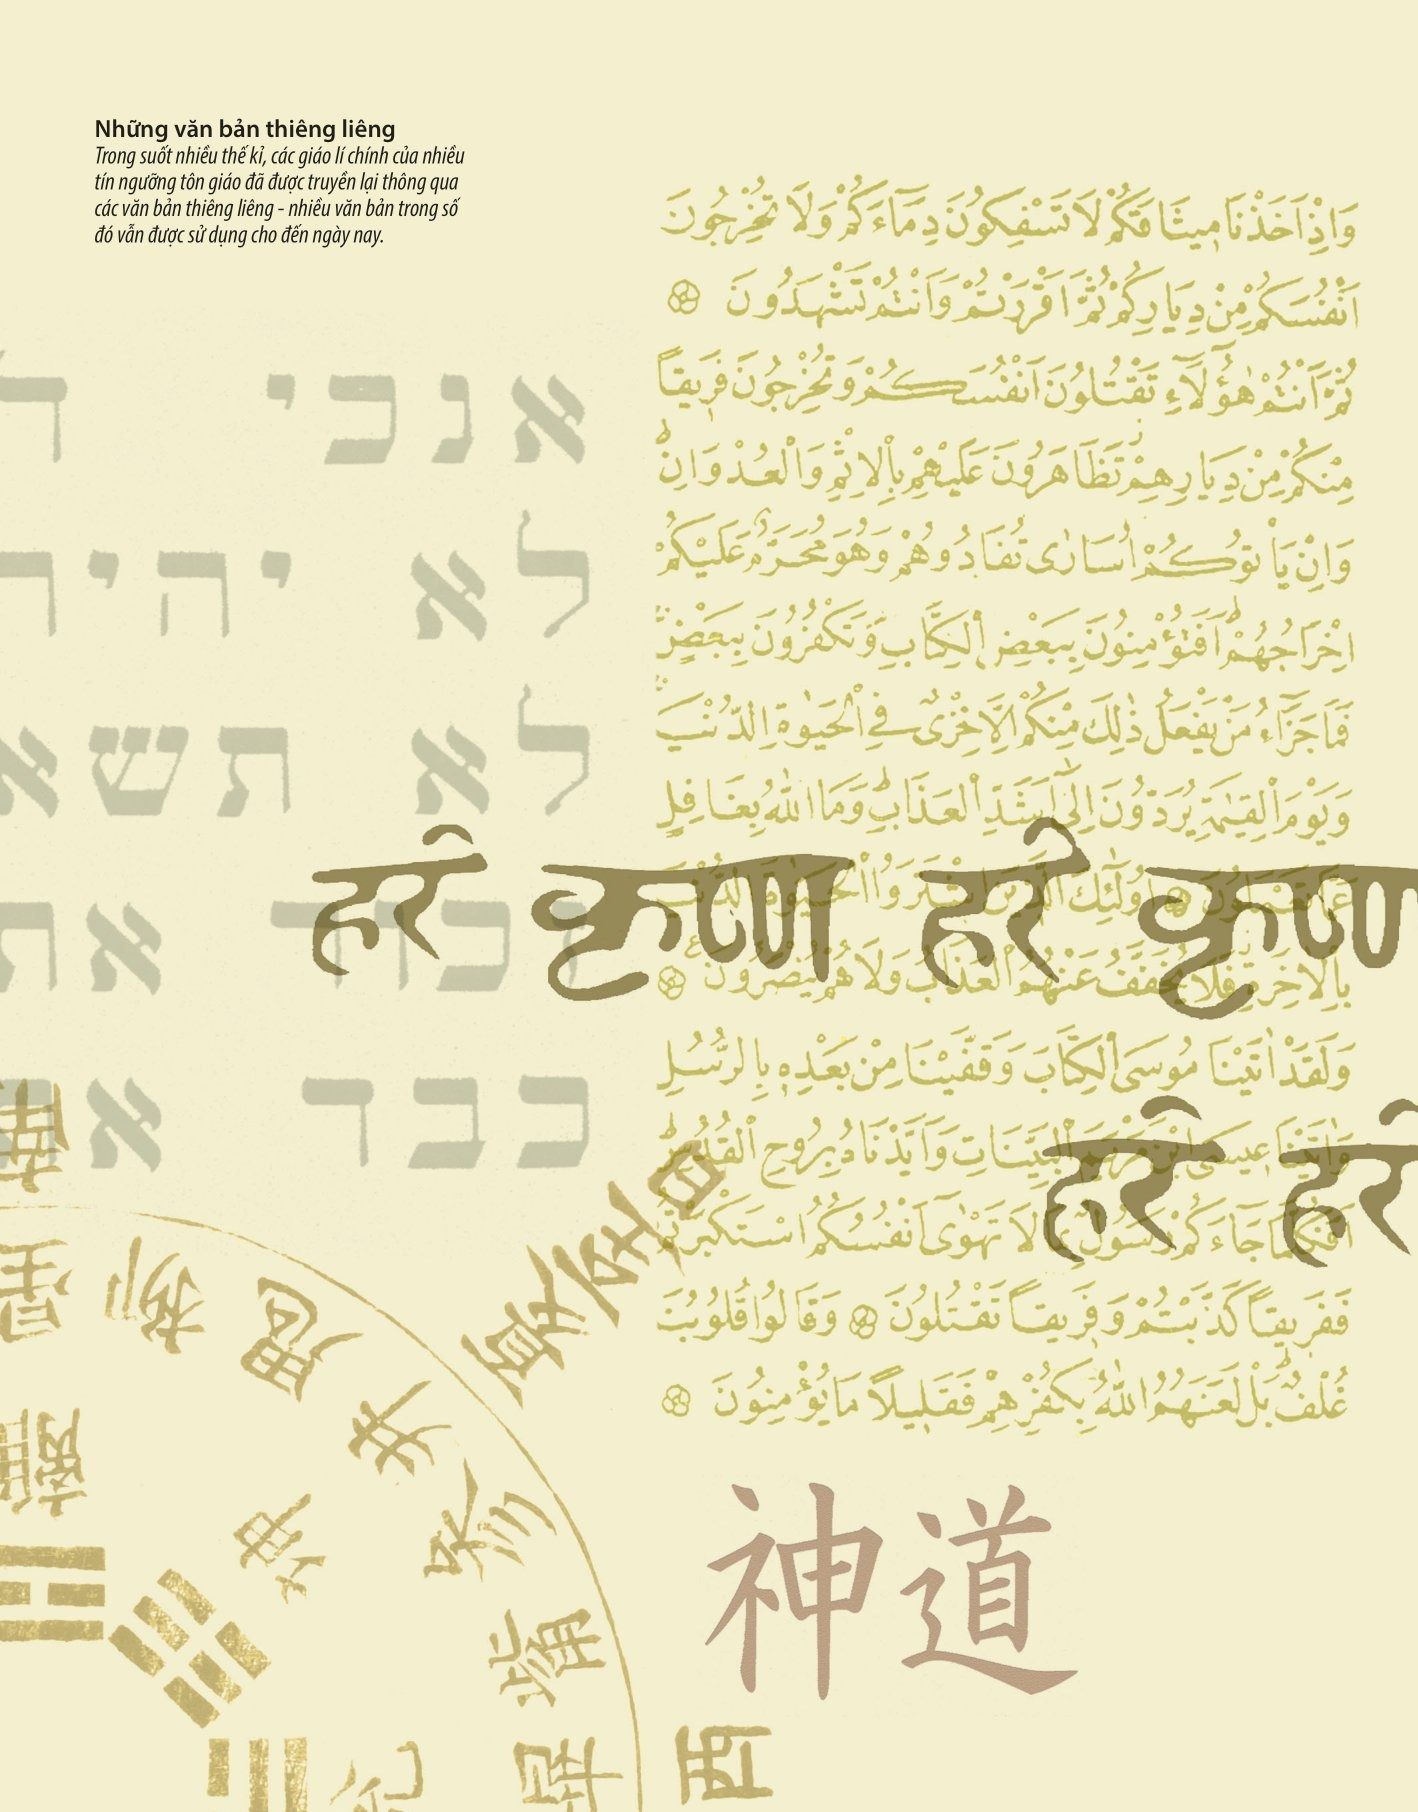 Những văn bản thiêng liêng
Trong suốt nhiều thế kỉ, các giáo lí chính của nhiều
tín ngưỡng tôn giáo đã được truyền lại thông qua
các văn bản thiêng liêng - nhiều văn bản trong số
đó vẫn được sử dụng cho đến ngày nay.
אנכי
לא יהיה
לא תשא
זכור את
כבד את
وَاِذْ اَخَذْنَا مِيثَاقَكُمْ لَا تَسْفِكُونَ دِمَٓاءَكُمْ وَلَا تُخْرِجُونَ
اَنْفُسَكُمْ مِنْ دِيَارِكُمْ ثُمَّ اَقْرَرْتُمْ وَاَنْتُمْ تَشْهَدُونَ
ثُمَّ اَنْتُمْ هٰٓؤُ۬لَٓاءِ تَقْتُلُونَ اَنْفُسَكُمْ وَتُخْرِجُونَ فَرِيقاً
مِنْكُمْ مِنْ دِيَارِهِمْ تَظَاهَرُونَ عَلَيْهِمْ بِالْاِثْمِ وَالْعُدْوَانِ
وَاِنْ يَأْتُوكُمْ اُسَارٰى تُفَادُوهُمْ وَهُوَ مُحَرَّمٌ عَلَيْكُمْ
اِخْرَاجُهُمْ اَفَتُؤْمِنُونَ بِبَعْضِ الْكِتَابِ وَتَكْفُرُونَ بِبَعْضٍ
فَمَا جَزَٓاءُ مَنْ يَفْعَلُ ذٰلِكَ مِنْكُمْ اِلَّا خِزْىٌ فِى الْحَيٰوةِ الدُّنْيَا
وَيَوْمَ الْقِيٰمَةِ يُرَدُّونَ اِلٰٓى اَشَدِّ الْعَذَابِ وَمَا اللّٰهُ بِغَافِلٍ
عَمَّا تَعْمَلُونَ اُو۬لٰٓئِكَ الَّذِينَ اشْتَرَوُا الْحَيٰوةَ الدُّنْيَا
بِالْاٰخِرَةِ فَلَا يُخَفَّفُ عَنْهُمُ الْعَذَابُ وَلَا هُمْ يُنْصَرُونَ
وَلَقَدْ اٰتَيْنَا مُوسَى الْكِتَابَ وَقَفَّيْنَا مِنْ بَعْدِهٖ بِالرُّسُلِ
وَاٰتَيْنَا عِيسَى ابْنَ مَرْيَمَ الْبَيِّنَاتِ وَاَيَّدْنَاهُ بِرُوحِ الْقُدُسِ
اَفَكُلَّمَا جَٓاءَكُمْ رَسُولٌ بِمَا لَا تَهْوٰٓى اَنْفُسُكُمُ اسْتَكْبَرْتُمْ
فَفَرِيقاً كَذَّبْتُمْ وَفَرِيقاً تَقْتُلُونَ وَقَالُوا قُلُوبُنَا
غُلْفٌ بَلْ لَعَنَهُمُ اللّٰهُ بِكُفْرِهِمْ فَقَلِيلاً مَا يُؤْمِنُونَ
हरे कृष्ण हरे कृष्ण
हरे हरे
神道
星
柳
鬼
井
西